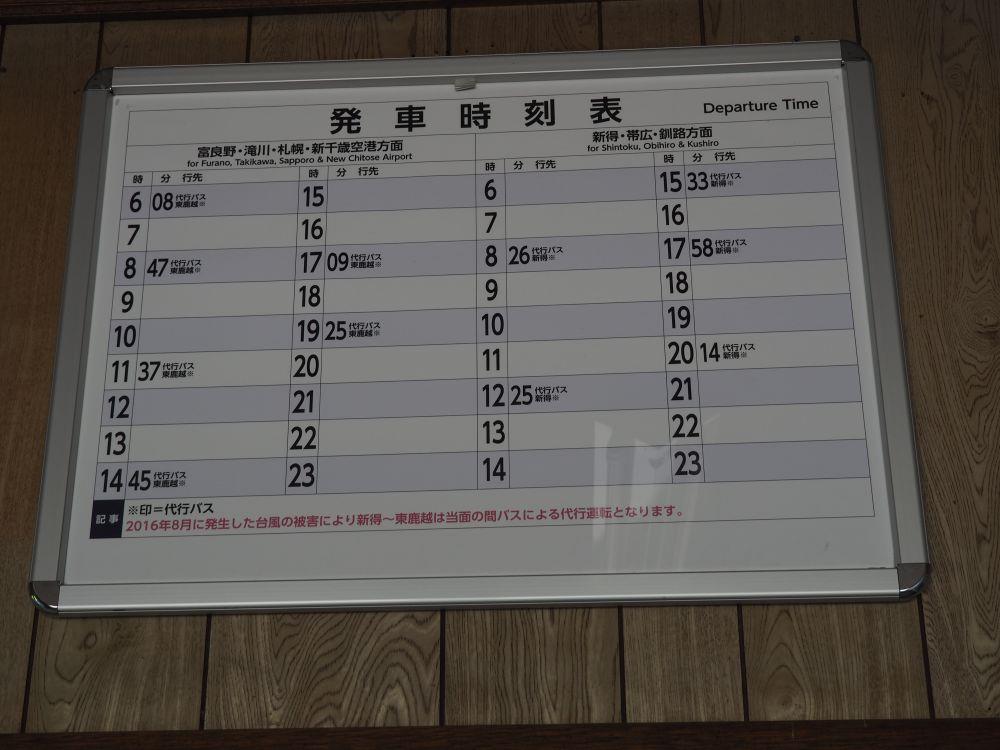 発車時刻表
Departure Time
富良野・滝川・札幌・新千歳空港方面
for Furano, Takikawa, Sapporo & New Chitose Airport
時 分 行先 時 分 行先
6 08 代行バス 東鹿越※ 15
7 16
8 47 代行バス 東鹿越※ 17 09 代行バス 東鹿越※
9 18
10 19 25 代行バス 東鹿越※
11 37 代行バス 東鹿越※ 20
12 21
13 22
14 45 代行バス 東鹿越※ 23
新得・帯広・釧路方面
for Shintoku, Obihiro & Kushiro
時 分 行先 時 分 行先
6 15 33 代行バス 新得※
7 16
8 26 代行バス 新得※ 17 58 代行バス 新得※
9 18
10 19
11 20 14 代行バス 新得※
12 25 代行バス 新得※ 21
13 22
14 23
記事
※印=代行バス
2016年8月に発生した台風の被害により新得～東鹿越は当面の間バスによる代行運転となります。